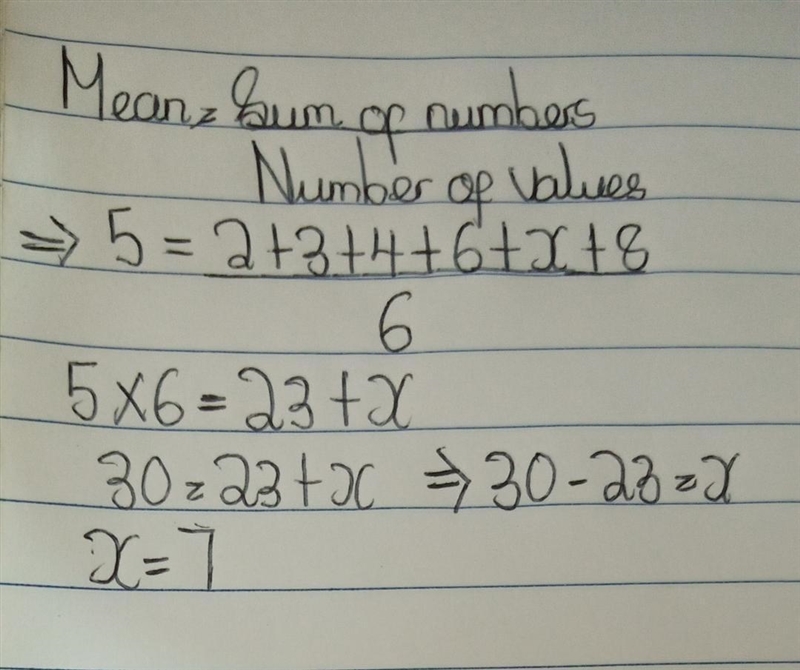 Mean = Sum of numbers
Number of values
⇒ 5 = 2+3+4+6+x+8
6
5×6 = 23+x
30 = 23+x ⇒ 30-23 = x
x = 7